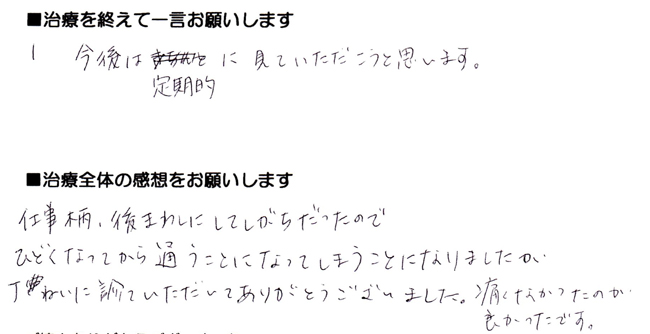 ■治療を終えて一言お願いします
1 今後は に見ていただこうと思います。
定期的
■治療全体の感想をお願いします
仕事柄、後まわしにしてしがちだったので
ひどくなってから通うことになってしまうことになりましたが
丁ねいに診ていただいてありがとうございました。痛くなかったのが
良かったです。